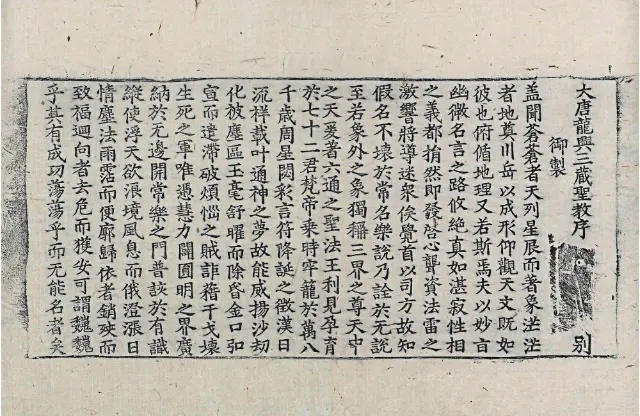 大唐龍興三藏聖教序
御製
別
盖聞蒼蒼者天列星辰而著象茫茫
者地奠川岳以成形仰觀天文旣如
彼也俯偱地理又若斯焉夫以妙言
幽徵名言之路攸絶真如湛寂性相
之義都捐然即發啓心聾資法雷之
激響將導迷衆俟覺首以司方故知
假名不壞於常名樂說乃詮於无說
至若象外之象獨稱三界之尊天中
之天爰著六通之聖法王利見孕育
於七十二君梵帝乗時牢籠於萬八
千歲周星閟彩言符降誕之徵漢日
流祥載叶通神之夢故能威揚沙劫
化被塵區玉毫舒曜而除昏金口弘
宣而遣滯破煩惱之賊詎藉干戈壞
生死之軍唯憑慧力闢圓明之界廣
納於无邊開常樂之門普該於有識
縱使浮天欲浪境風息而俄澄漲日
情塵法雨霑而便廓歸依者銷殃而
致福迴向者去危而獲安可謂巍巍
乎其有成功蕩蕩乎而无能名者矣